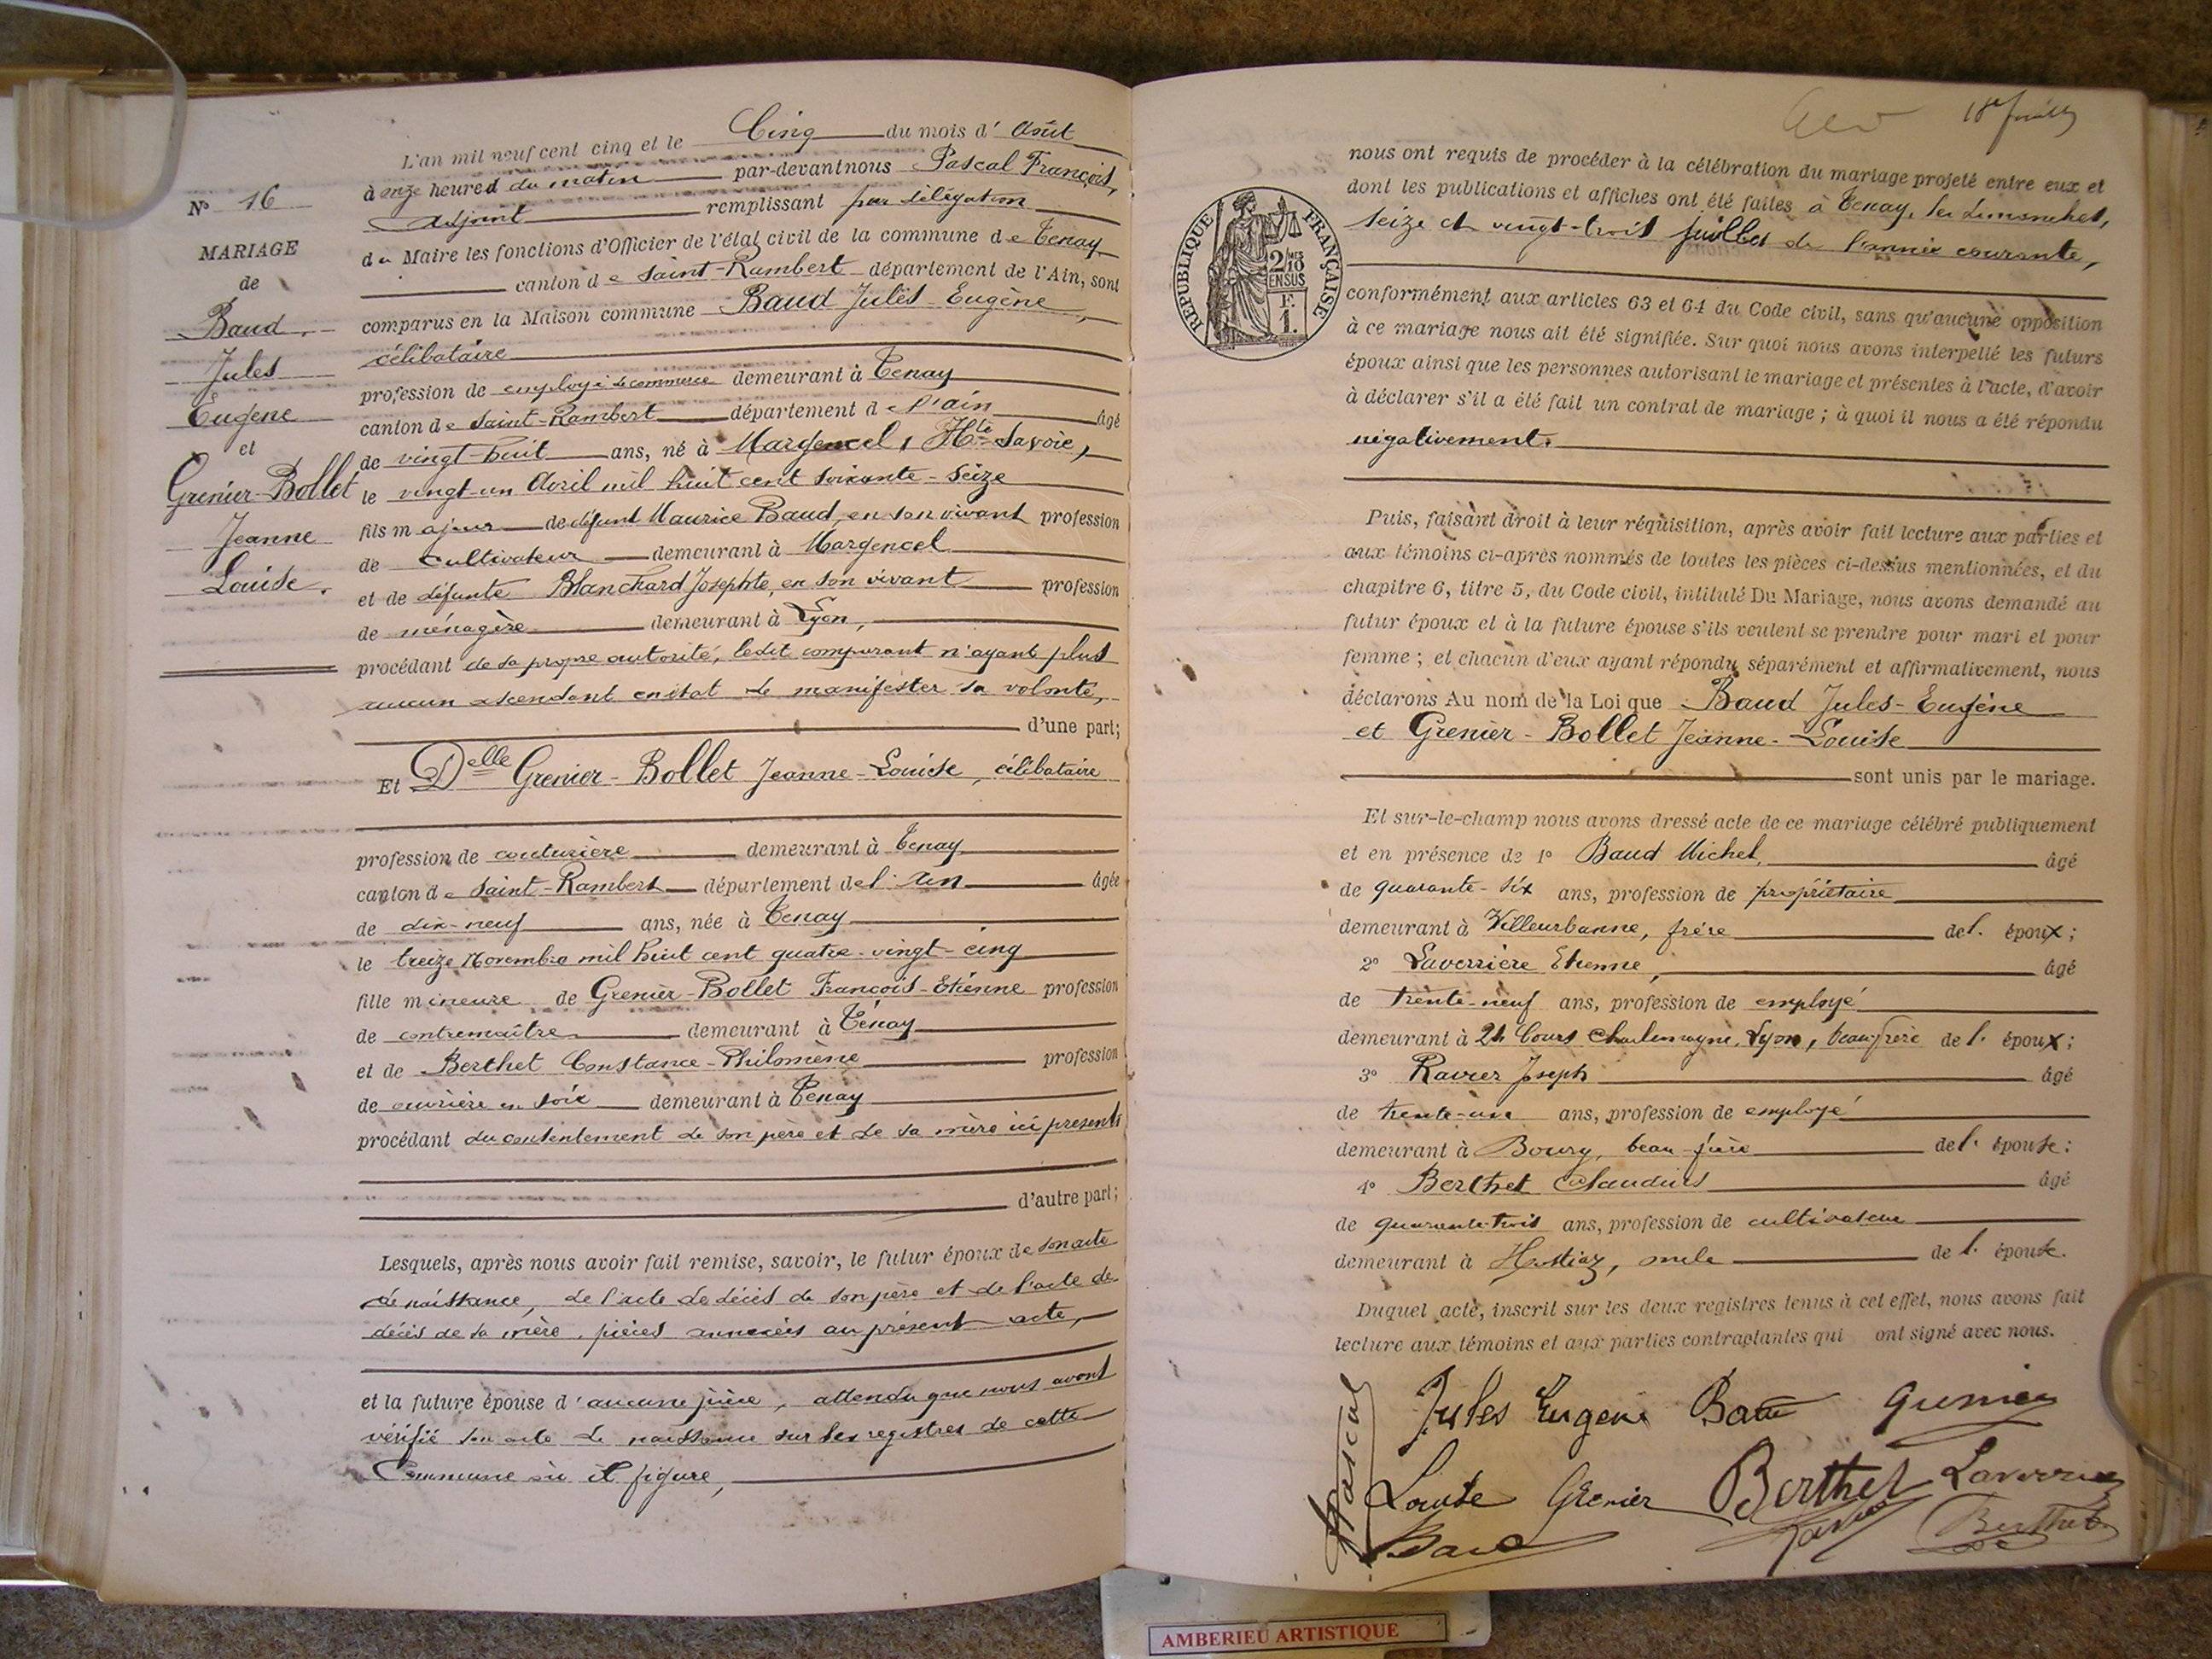 N° 16
MARIAGE
de
Baud
Jules
Eugène
et
Grenier-Bollet
Jeanne
Louise.
L'an mil neuf cent cinq et le Cinq du mois d'Août
à onze heures du matin par-devant nous Pascal François,
adjoint remplissant par délégation
du Maire les fonctions d'Officier de l'état civil de la commune de Tenay
canton de Saint-Rambert département de l'Ain, sont
comparus en la Maison commune Baud Jules-Eugène,
célibataire
profession de employé de commerce demeurant à Tenay
canton de Saint-Rambert département de l'ain âgé
de vingt-huit ans, né à Margencel, Hte Savoie,
le vingt-un Avril mil huit cent soixante-seize
fils majeur de défunt Maurice Baud, en son vivant profession
de cultivateur demeurant à Margencel
et de défunte Blanchard Josephte, en son vivant profession
de ménagère demeurant à Lyon,
procédant de sa propre autorité, ledit comparant n'ayant plus
aucun ascendant en état de manifester sa volonté,
d'une part;
Et Delle Grenier-Bollet Jeanne-Louise, célibataire
profession de couturière demeurant à Tenay
canton de Saint-Rambert département de l'Ain âgée
de dix-neuf ans, née à Tenay
le treize Novembre mil huit cent quatre-vingt-cinq
fille mineure de Grenier-Bollet François-Etienne profession
de contremaître demeurant à Tenay
et de Berthet Constance-Philomène profession
de ouvrière en soie demeurant à Tenay
procédant du consentement de son père et de sa mère ici présents
d'autre part;
Lesquels, après nous avoir fait remise, savoir, le futur époux de son acte
de naissance, de l'acte de décès de son père et de l'acte de
décès de sa mère, pièces annexées au présent acte,
et la future épouse d'aucune pièce, attendu que nous avons
vérifié son acte de naissance sur les registres de cette
Commune où il figure,
REPUBLIQUE FRANÇAISE
2/10 MES
EN SUS
F.
1.
nous ont requis de procéder à la célébration du mariage projeté entre eux et
dont les publications et affiches ont été faites à Tenay, les dimanches,
seize et vingt-trois juillet de l'année courante,
conformément aux articles 63 et 64 du Code civil, sans qu'aucune opposition
à ce mariage nous ait été signifiée. Sur quoi nous avons interpellé les futurs
époux ainsi que les personnes autorisant le mariage et présentes à l'acte, d'avoir
à déclarer s'il a été fait un contrat de mariage; à quoi il nous a été répondu
négativement.
Puis, faisant droit à leur réquisition, après avoir fait lecture aux parties et
aux témoins ci-après nommés de toutes les pièces ci-dessus mentionnées, et du
chapitre 6, titre 5, du Code civil, intitulé Du Mariage, nous avons demandé au
futur époux et à la future épouse s'ils veulent se prendre pour mari et pour
femme; et chacun d'eux ayant répondu séparément et affirmativement, nous
déclarons Au nom de la Loi que Baud Jules-Eugène
et Grenier-Bollet Jeanne-Louise
sont unis par le mariage.
Et sur-le-champ nous avons dressé acte de ce mariage célébré publiquement
et en présence de 1° Baud Michel, âgé
de quarante-six ans, profession de propriétaire
demeurant à Villeurbanne, frère de l'époux;
2° Laverrière Etienne, âgé
de trente-neuf ans, profession de employé
demeurant à 24 Cours Charlemagne, Lyon, beau-frère de l'époux;
3° Ravier Joseph âgé
de trente-un ans, profession de employé
demeurant à Bourg, beau-frère de l'épouse;
4° Berthet Claudius âgé
de quarante-trois ans, profession de cultivateur
demeurant à Hostiaz, oncle de l'épouse.
Duquel acte, inscrit sur les deux registres tenus à cet effet, nous avons fait
lecture aux témoins et aux parties contractantes qui ont signé avec nous.
Jules Eugène Baud Grenier
Pascal
Louise Grenier Berthet Laverrière
Baud Ravier Berthet
AMBERIEU ARTISTIQUE